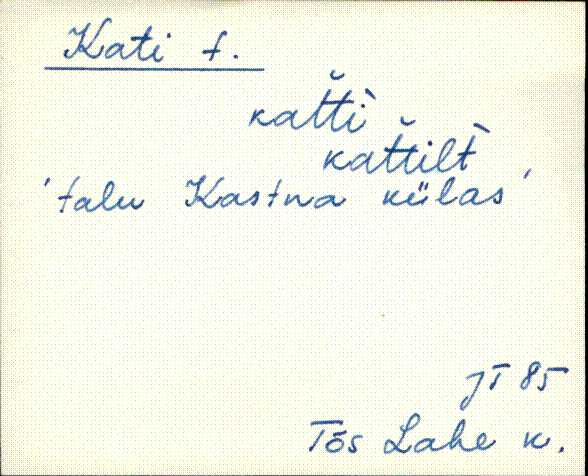 Kati t.
kat̆ti̖
kat̆tilt̖
'talu Kastna külas'
JT 85
Tõs Lahe k.